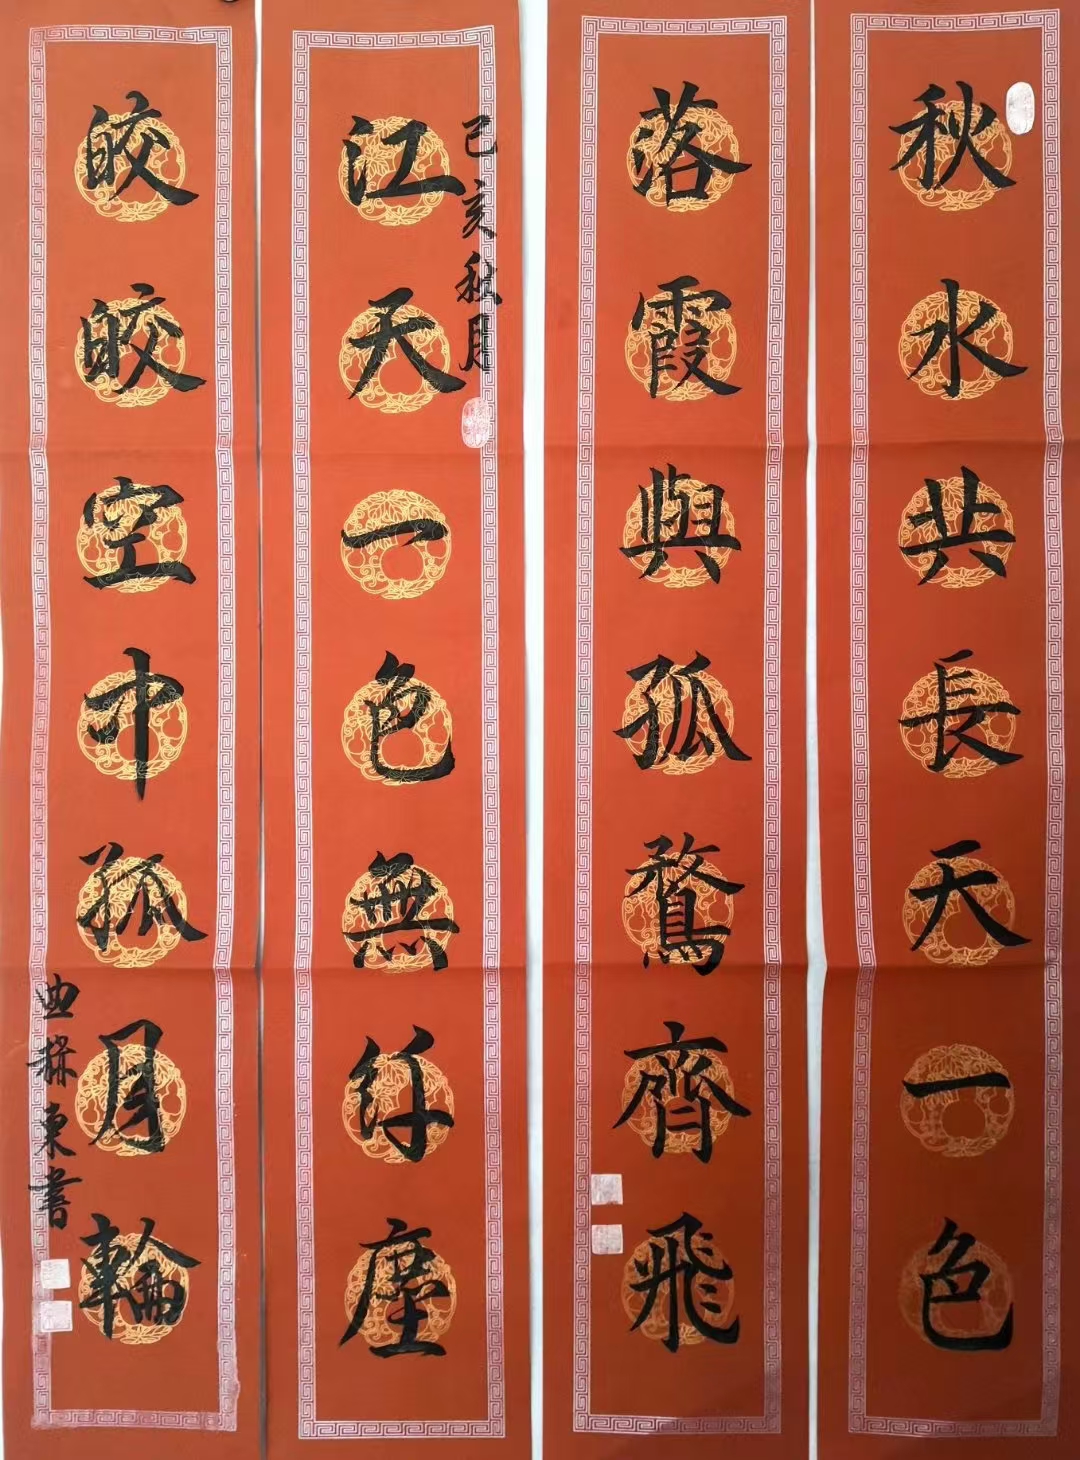 秋水共長天一色
落霞與孤鶩齊飛
江天一色無纤塵
己亥秋月
皎皎空中孤月輪
曲
東書